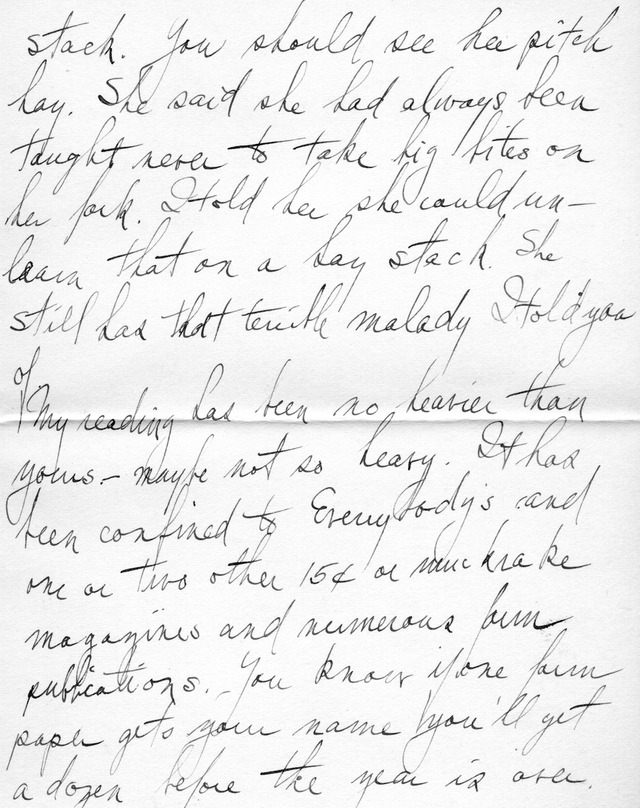 stack. You should see her pitch
hay. She said she had always been
taught never to take big bites on
her fork. I told her she could un-
learn that on a hay stack. She
still has that terrible malady I told you
of
My reading has been no heavier than
yours - maybe not so heavy. It has
been confined to Everybody's and
one or two other 15¢ or muckrake
magazines and numerous farm
publications. - You know if one farm
paper gets your name you'll get
a dozen before the year is over.